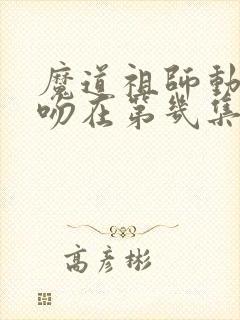 魔道祖師動
吻在第幾集
高彥彬